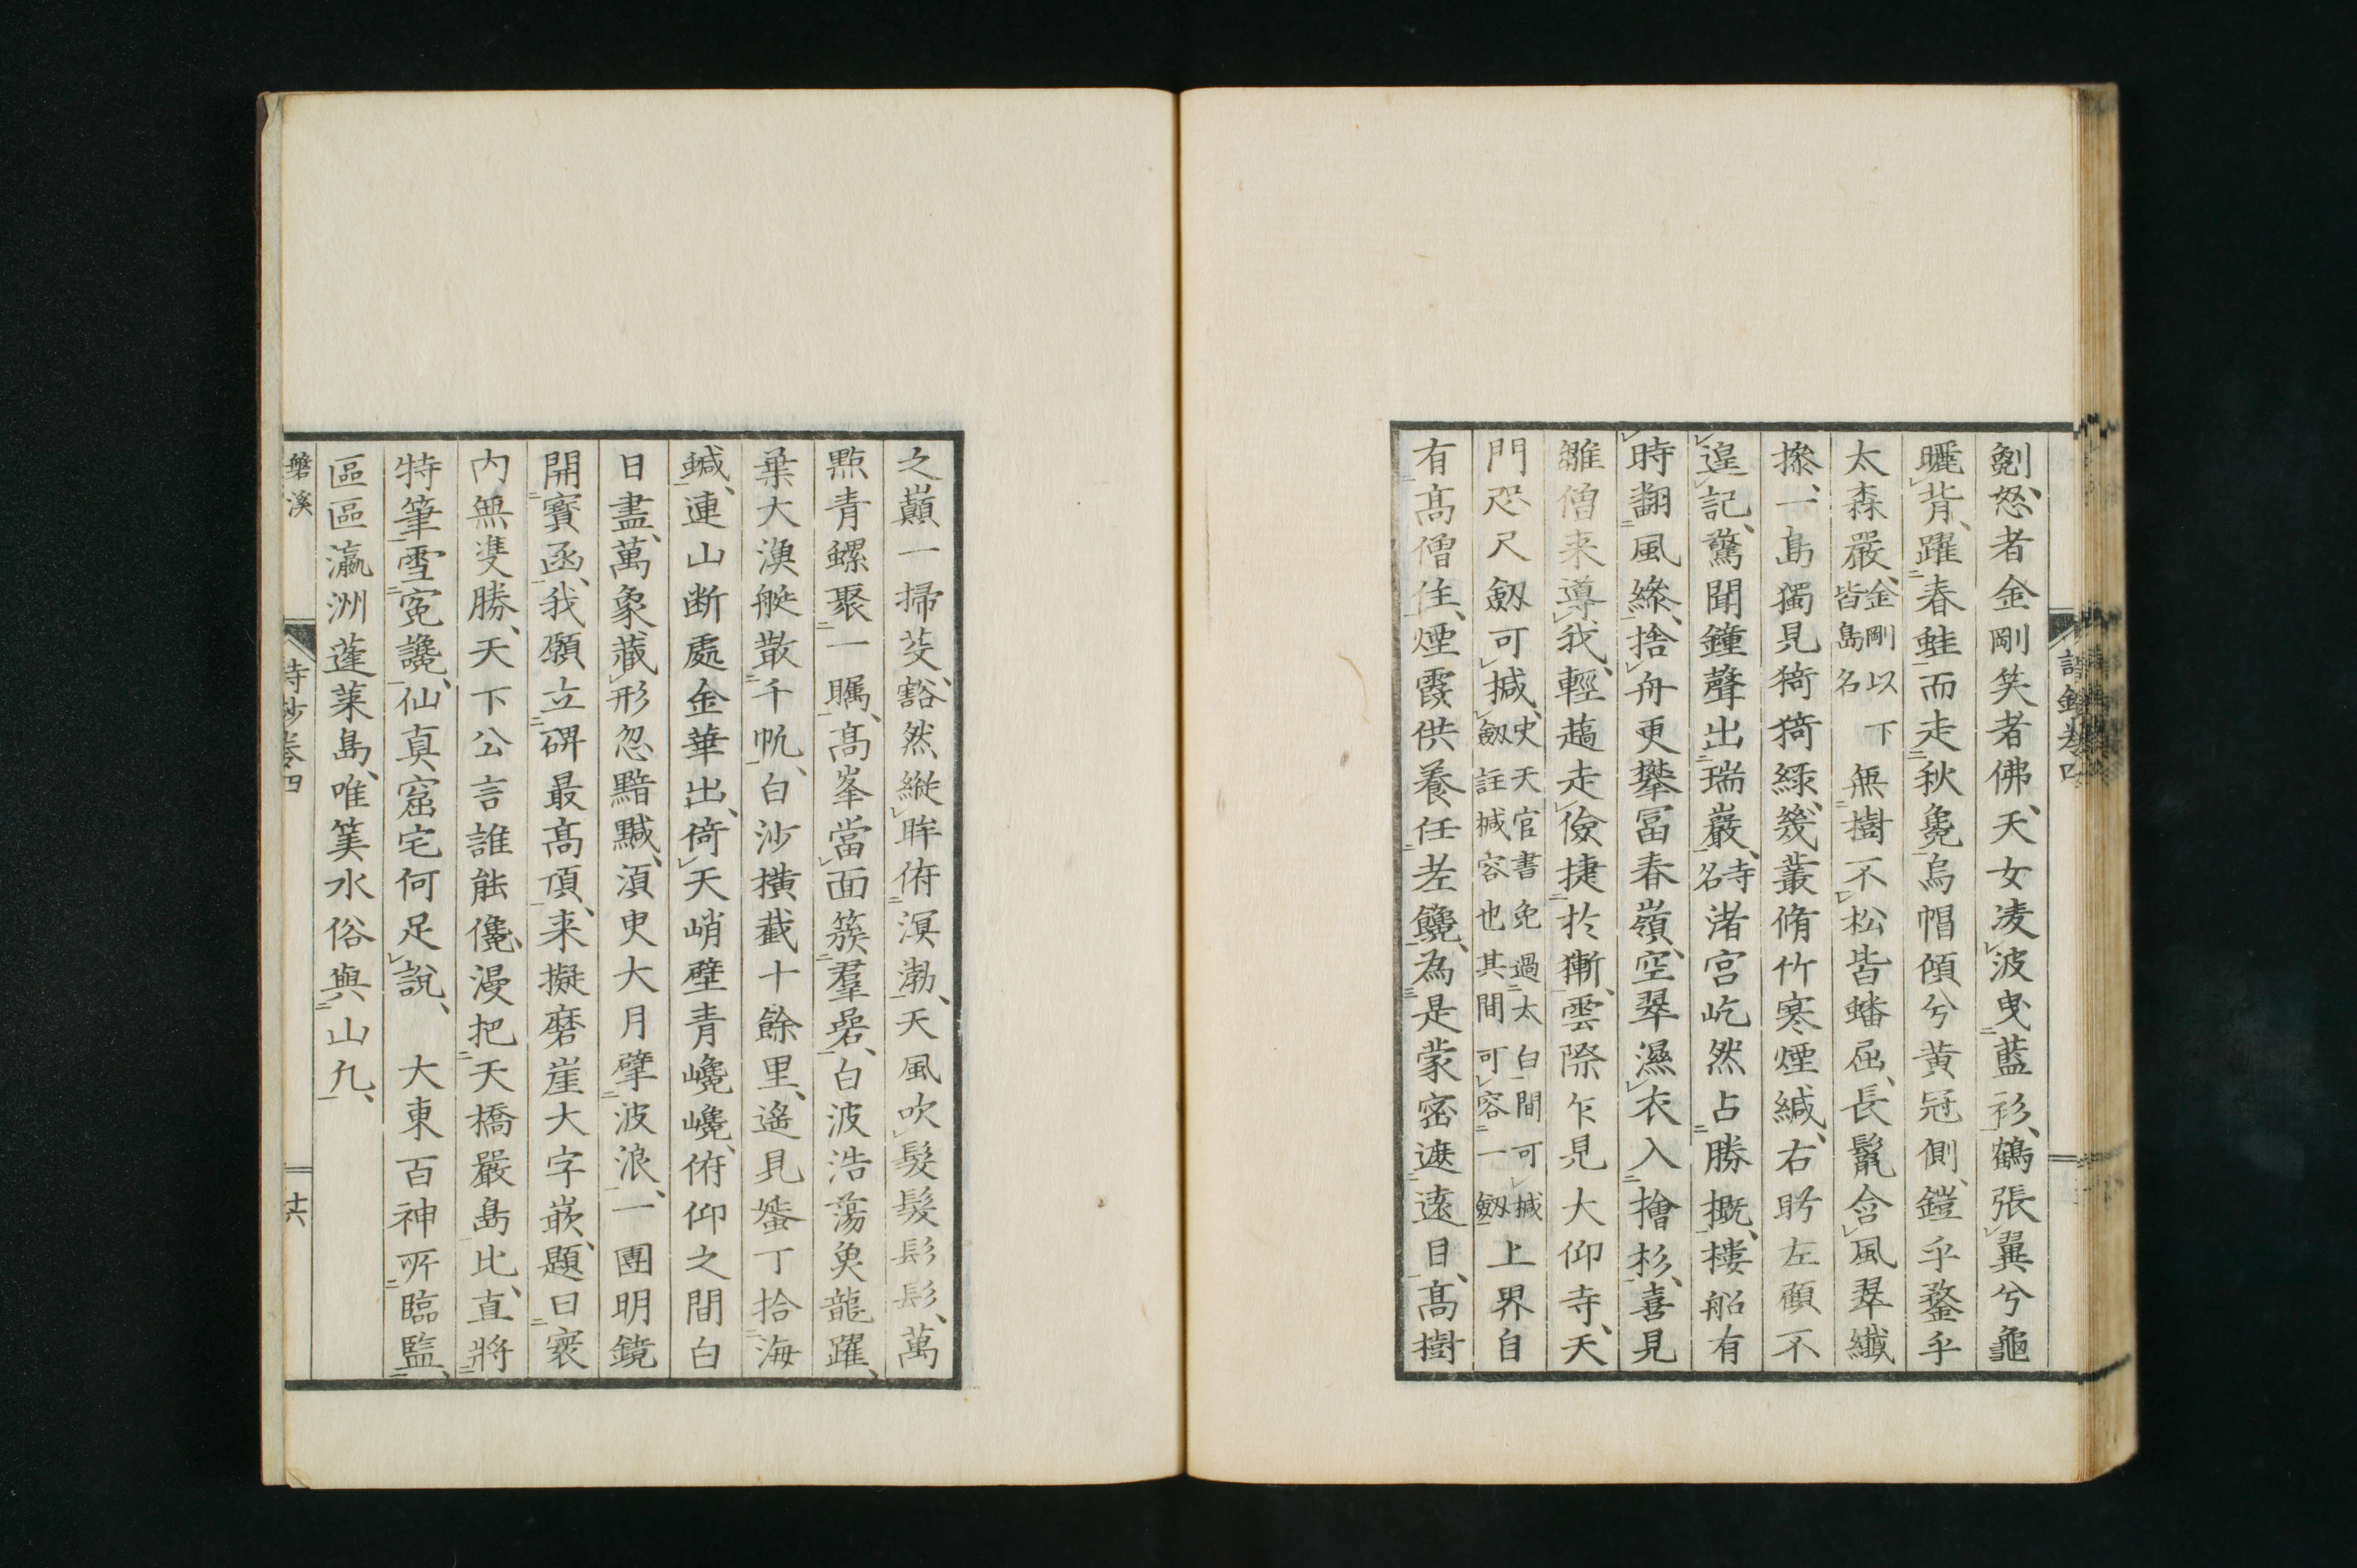 劖、怒者金剛笑者佛、天女凌波曳藍衫、鶴張翼兮龜
曬背、躍春蛙而走秋毚、烏帽傾兮黄冠側、鎧乎鍪乎
太森嚴、金剛以下皆島名無樹不松皆蟠屈、長鬣含風翠纖
摻、一島獨見猗猗綠、幾叢脩竹寒煙緘、右盻左顧不
遑記、驚聞鐘聲出瑞巖、寺名渚宮屹然占勝概、樓船有
時翻風縿、捨舟更攀冨春嶺、空翠濕衣入檜杉、喜見
雛僧来導我、輕趫走儉捷於獑、雲際乍見大仰寺、天
門咫尺劔可搣、史天官書免過太白間可搣劔註搣容也其間可容一劔上界自
有髙僧住、煙霞供養任老饞、為是蒙密遮遠目、髙樹
之巔一掃芟、豁然縱眸俯溟渤、天風吹髮髮髟髟、萬
點青螺聚一矚、髙峯當面簇羣碞、白波浩蕩魚龍躍、
葉大漁艇散千帆、白沙横截十餘里、遙見蜑丁拾海
蝛、連山断處金華出、倚天峭壁青巉巉、俯仰之間白
日盡、萬象藏形忽黯黬、湏臾大月擘波浪、一團明鏡
開寳函、我願立碑最髙頂、来擬磨崖大字嵌、題曰寰
内無雙勝、天下公言誰能儳、漫把天橋嚴島比、直將
特筆雪寃讒、仙真窟宅何足說、　大東百神所臨監、
區區瀛洲蓬莱島、唯箕水俗與山凡、
磐溪　詩鈔卷四　十六